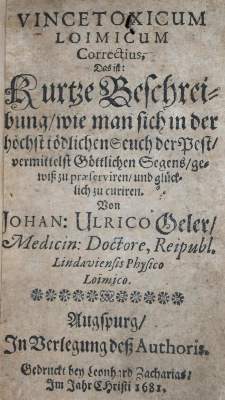 VINCETOXICUM
LOIMICUM
Correctius,
Das ist:
Kurtze Beschrei-
bung/ wie man sich in der
höchst tödlichen Seuch der Pest/
vermittelst Göttlichen Segens/ ge-
wiß zu præserviren/ und glück-
lich zu curiren.
Von
JOHAN: ULRICO Geler/
Medicin: Doctore, Reipubl.
Lindaviensis Physico
Loimico.
Augspurg/
In Verlegung deß Authoris.
Gedruckt bey Leonhard Zacharias/
Im Jahr CHristi 1681.